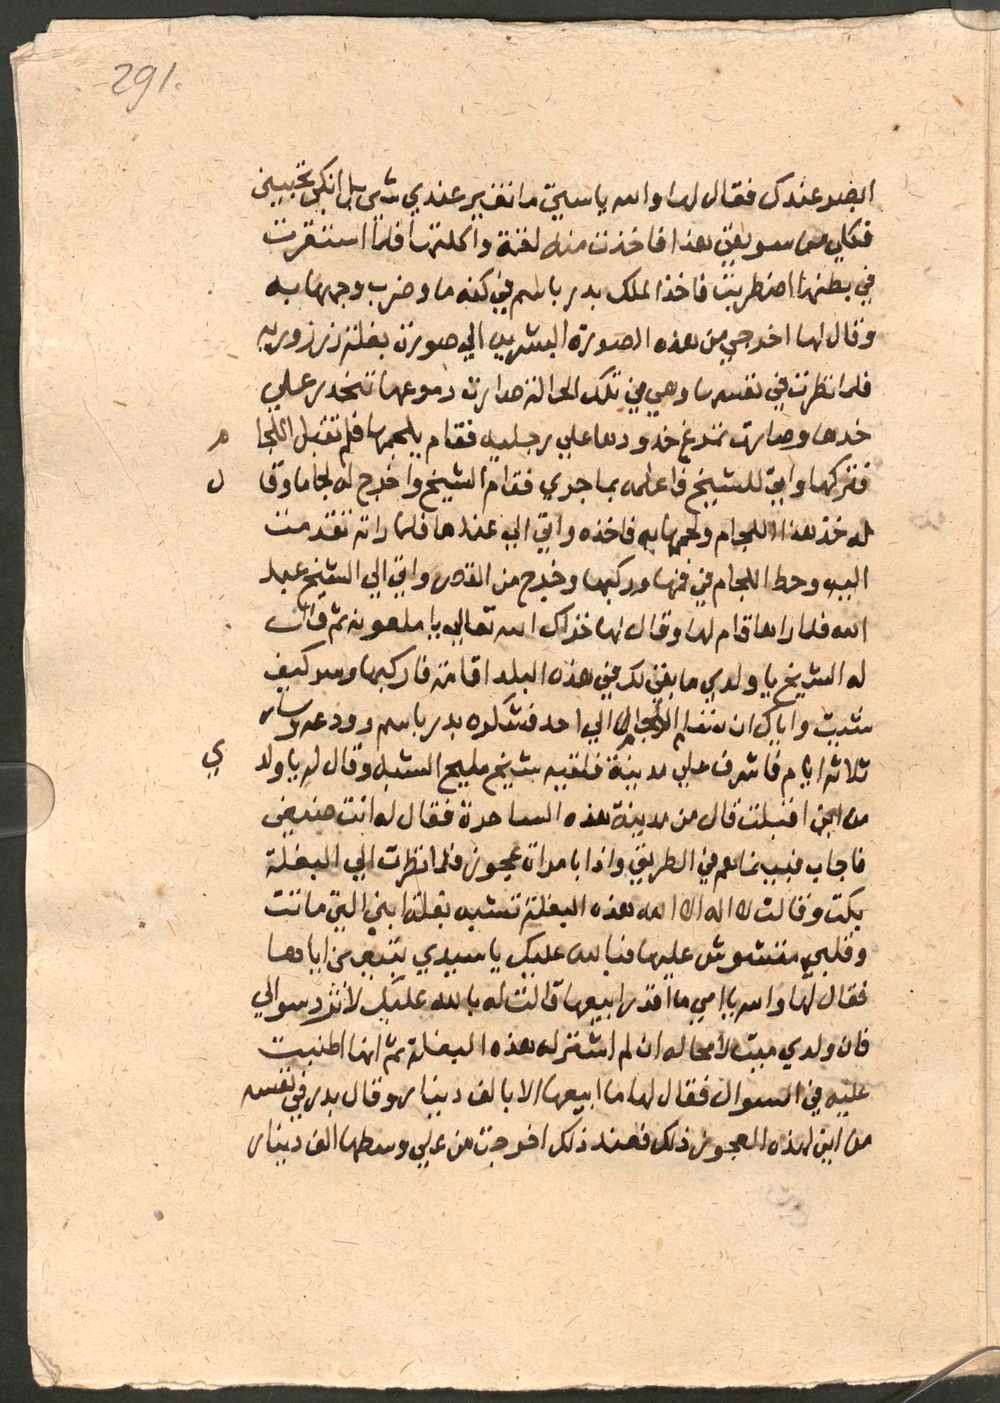 291
ايضر عندك فقال لها والله يا ستي ما تغير عندي شي بل انكي تحبيني
فكلي من سويقي هذا فاخذت منه لقمة واكلتها فلما استقرت
في بطنها اضطربت فاخذ الملك بدر باسم في كفه ما وضرب وجهها به
وقال لها اخرجي من هذه الصورة البشريه الي صورت بغلة زرزوريه
فلما نظرت في نفسها وهي في تلك الحالة صارت دموعها تنحدر علي
خدها وصارت تمرغ خدودها علي رجليه فقام يلجمها فلم تقبل اللجا
م
فتركها واتي للشيخ واعلمه بما جري فقام الشيخ واخرج له لجاما وقا
ل
له خذ هذا اللجام ولجمها به فاخذه واتي الي عندها فلما راته تقدمت
اليه وحط اللجام في فمها وركبها وخرج من القصر واتي الي الشيخ عبد
الله فلما راها قام لها وقال لها خزاك الله تعالي يا ملعونه ثم قال
له الشيخ يا ولدي ما بقي لك في هذه البلد اقامة فاركبها وسر كيف
شيت واياك ان تسلم اللجام الي احد فشكره بدر باسم وودعه وسار
ثلاثة ايام فاشرف علي مدينة فلقيه شيخ مليح الشيبه وقال له يا ولد
ي
من اين اقبلت قال من مدينة هذه الساحرة فقال له انت ضيفي
فاجاب فبينما هم في الطريق واذا بامراة عجوز فلما نظرت الي البغلة
بكت وقالت لا اله الا الله هذه البغلة تشبه بغلة ابني التي ماتت
وقلبي متشوش عليها فبالله عليك يا سيدي تبيعني اياها
فقال لها والله يا امي ما اقدر ابيعها قالت له بالله عليك لا ترد سوالي
فان ولدي ميت لا محاله ان لم اشتر له هذه البغلة ثم انها اطنبت
عليه في السوال فقال لها ما ابيعها الا بالف دينار وقال بدر في نفسه
من اين لهذه العجوز ذلك فعند ذلك اخرجت من علي وسطها الف دينار